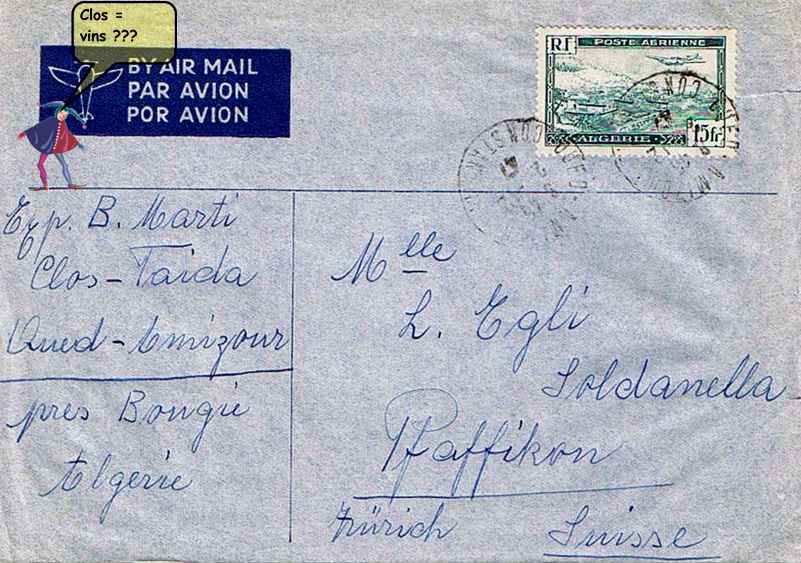 Clos =
vins ???
BY AIR MAIL
PAR AVION
POR AVION
RF POSTE AERIENNE
ALGERIE 15fr
Exp. B. Marti
Clos-Taida
Oued-Amizour
près Bougie
Algérie
Mlle
L. Egli
Soldanella
Pfaffikon
Zürich Suisse